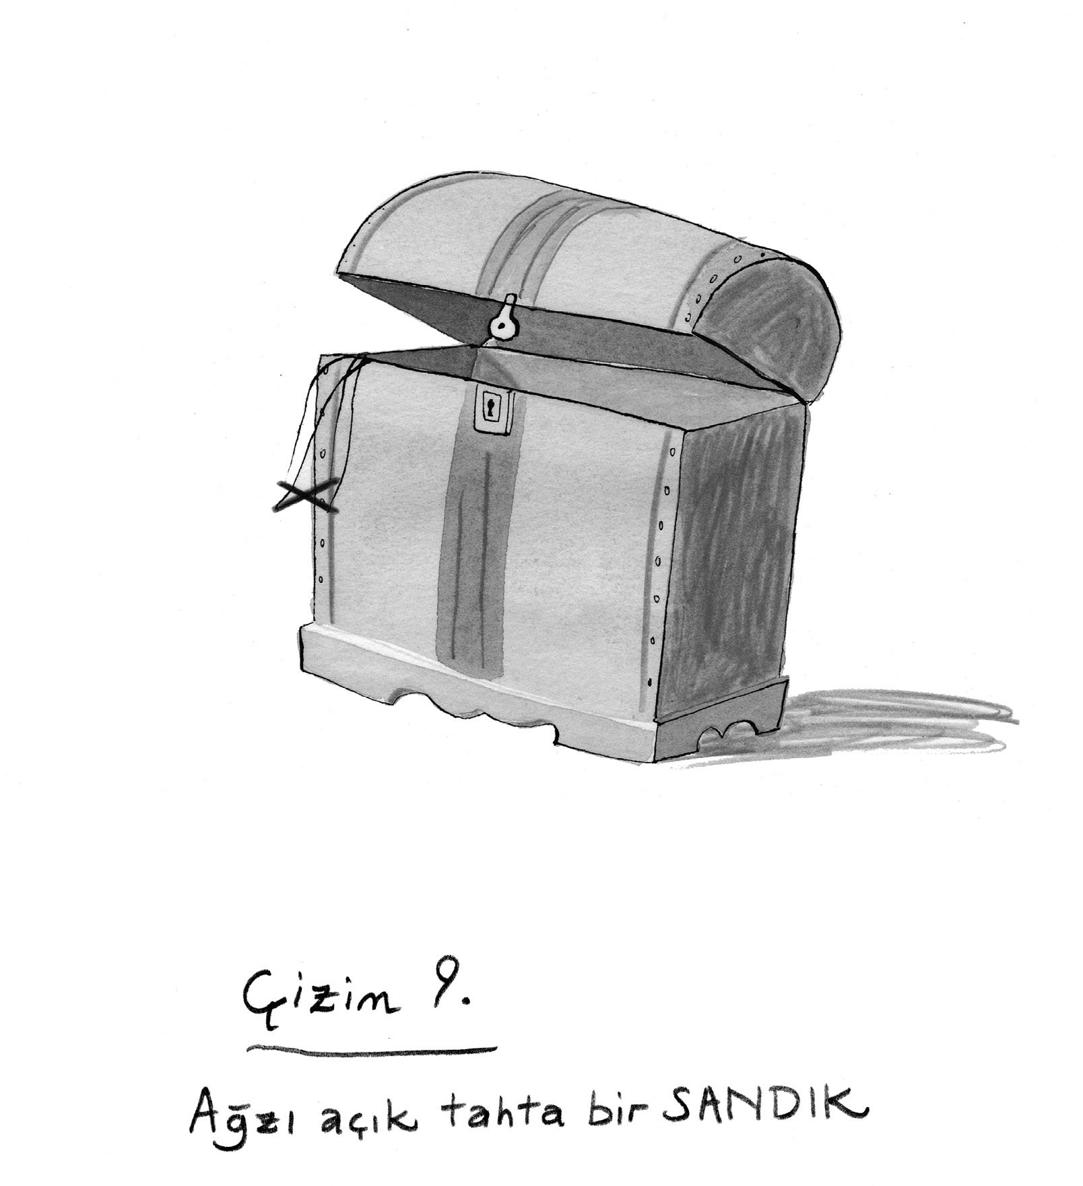 Çizim 9.
Ağzı açık tahta bir SANDIK